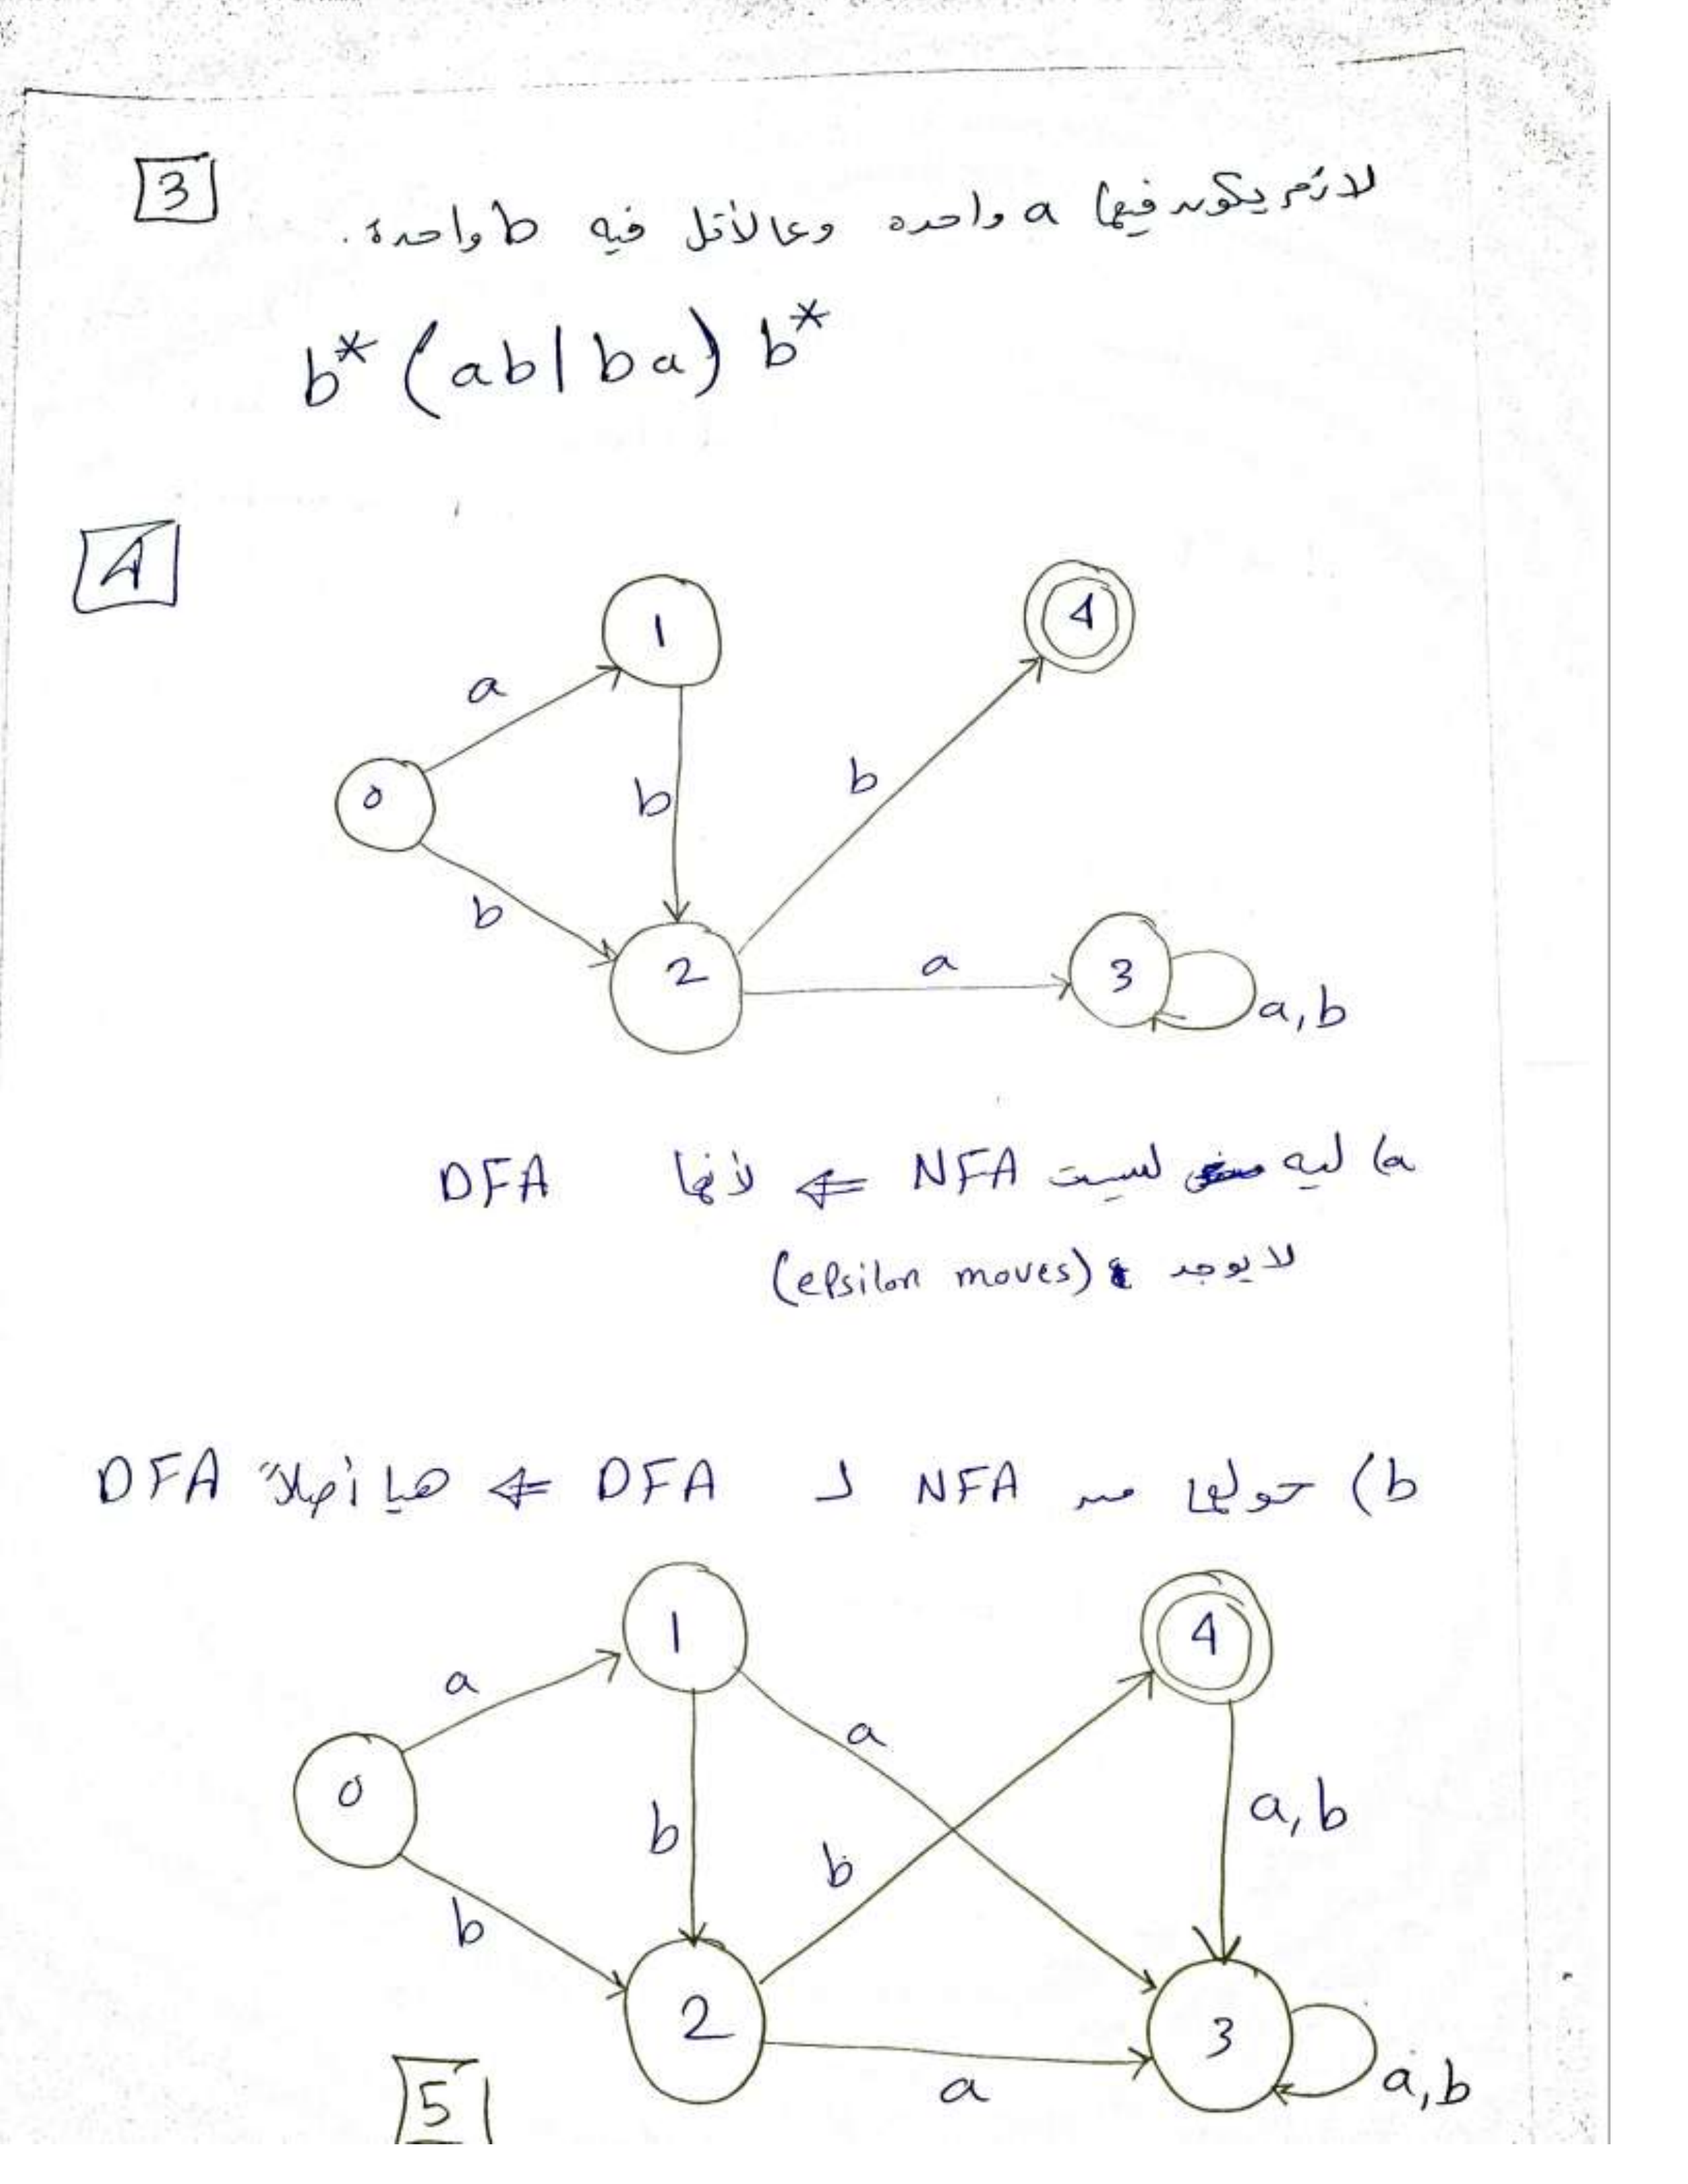 3
لازم يكون فيها a واحده وعالأقل فيه b واحدة.
b* (ab|ba) b*
4
1
4
a
0
b
b
b
2
a
3
a,b
a) ليه ليست NFA ⇐ لأنها DFA
لا يوجد (epsilon moves)
b) حولها من NFA لـ DFA ⇐ هيا أصلاً DFA
1
4
a
a
0
b
b
a,b
b
2
3
a
a,b
5